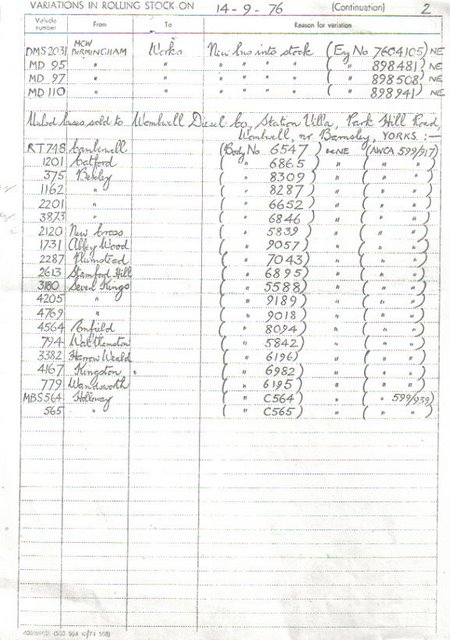 VARIATIONS IN ROLLING STOCK ON 14-9-76 (Continuation) 2
Vehicle number From To Reason for variation
DMS2031 MCW BIRMINGHAM Works New bus into stock (Eng No 7604105) NE
MD 95 " " " " " " ( " " 898481) NE
MD 97 " " " " " " ( " " 898508) NE
MD 110 " " " " " " ( " " 898941) NE
Unlicd buses sold to Wombwell Diesel Co, Station Villa, Park Hill Road,
Wombwell, nr Barnsley, YORKS :—
RT748 Camberwell (Body No 6547) NE (AWCA 599/917)
1201 Catford ( " 6865 ) " ( " " )
375 Bexley ( " 8309 ) " ( " " )
1162 " ( " 8287 ) " ( " " )
2201 " ( " 6652 ) " ( " " )
3873 " ( " 6846 ) " ( " " )
2120 New Cross ( " 5839 ) " ( " " )
1731 Abbey Wood ( " 9057 ) " ( " " )
2287 Plumstead ( " 7043 ) " ( " " )
2613 Stamford Hill ( " 6895 ) " ( " " )
3180 Seven Kings ( " 5588 ) " ( " " )
4205 " ( " 9189 ) " ( " " )
4769 " ( " 9018 ) " ( " " )
4564 Enfield ( " 8094 ) " ( " " )
794 Walthamstow ( " 5842 ) " ( " " )
3382 Harrow Weald ( " 6196 ) " ( " " )
4167 Kingston ( " 6982 ) " ( " " )
779 Wandsworth ( " 6195 ) " ( " " )
MBS564 Holloway ( " C564 ) " ( " 599/939)
565 " ( " C565 ) " ( " " )